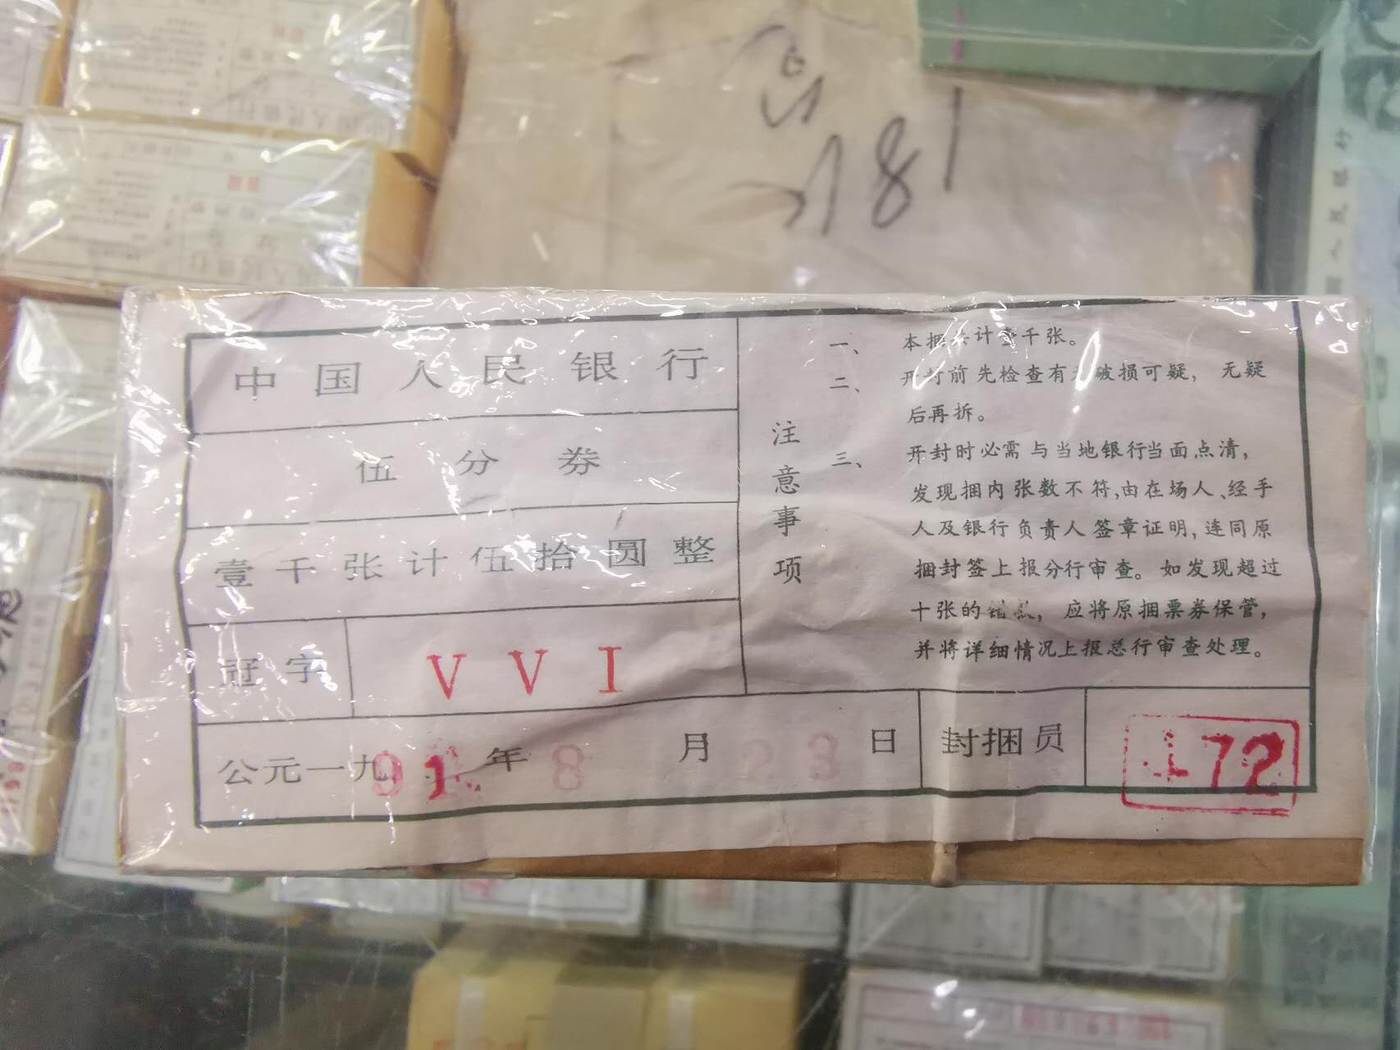 181
中国人民银行
伍分券
壹千张计伍拾圆整
冠字 VVI
公元一九91年8月23日 封捆员 172
注意事项
一、本捆共计壹千张。
二、开封前先检查有无破损可疑，无疑
后再拆。
三、开封时必需与当地银行当面点清，
发现捆内张数不符，由在场人、经手
人及银行负责人签章证明，连同原
捆封签上报分行审查。如发现超过
十张的错款，应将原捆票券保管，
并将详细情况上报总行审查处理。